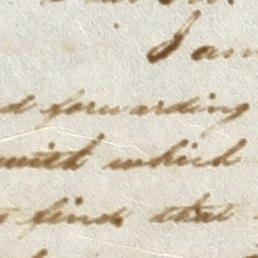 I am
forwarding
with which
find that